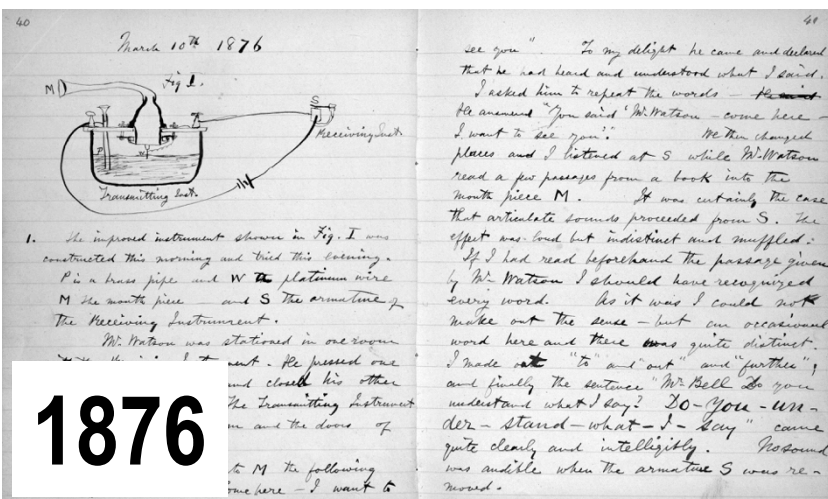 40
March 10th 1876
Fig 1.
M
S
Receiving Inst.
P
W
Transmitting Inst.
1. The improved instrument shown in Fig. I was
constructed this morning and tried this evening.
P is a brass pipe and W the platinum wire
M the mouth piece — and S the armature of
the Receiving Instrument.
Mr. Watson was stationed in one room
. He pressed one
and closed his other
The Transmitting Instrument
and the doors of
to M the following
come here — I want to
1876
41
see you". To my delight he came and declared
that he had heard and understood what I said.
I asked him to repeat the words —
He answered "You said 'Mr. Watson — come here —
I want to see you'." We then changed
places and I listened at S while Mr. Watson
read a few passages from a book into the
mouth piece M. It was certainly the case
that articulate sounds proceeded from S. The
effect was loud but indistinct and muffled.
If I had read beforehand the passage given
by Mr. Watson I should have recognized
every word. As it was I could not
make out the sense — but an occasional
word here and there was quite distinct.
I made out "to" and "out" and "further";
and finally the sentence "Mr. Bell Do you
understand what I say? Do-you-un-
der-stand-what-I-say" came
quite clearly and intelligibly. No sound
was audible when the armature S was re-
moved.